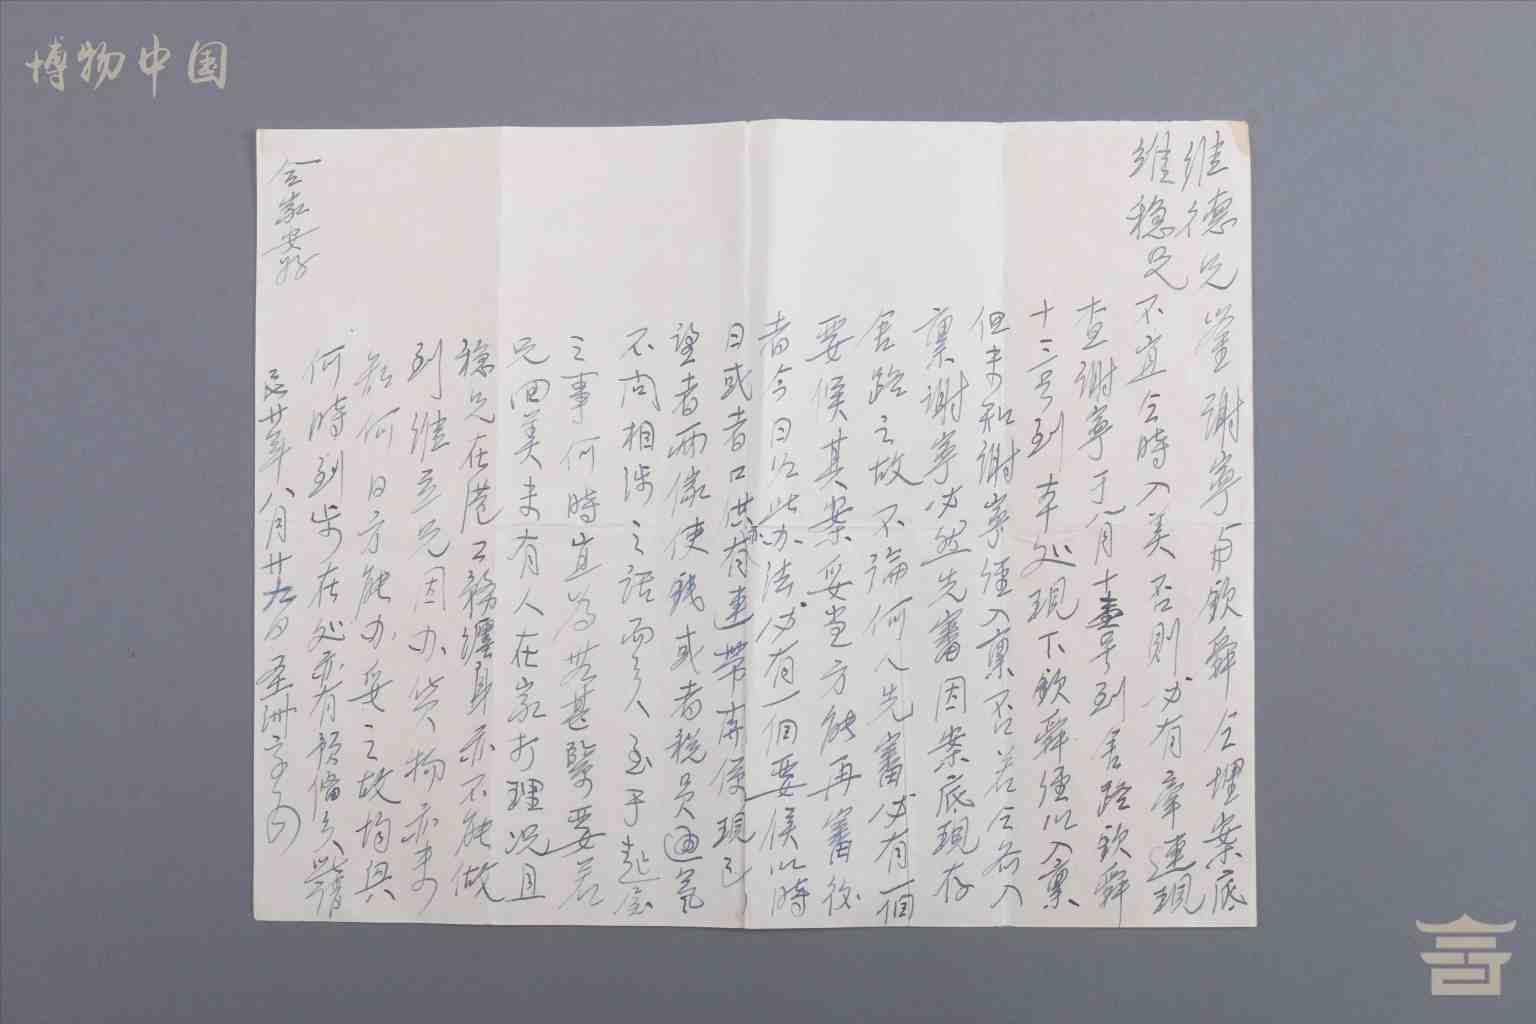 博物中国
維德兄鑒謝寧與欽舜仝埋案底
維穩兄不宜仝時入美否則必有牽連現
查謝寧于八月十壹号到舍路欽舜
十三号到本处現下欽舜經以入禀
但未知謝寧經入禀否若仝前入
禀謝寧必然先審因案底現存
舍路之故不論何人先審必有一個
要候其案妥当方能再審後
者今日以此办法必有一個要候以時
日或者口供亦有連帶有偍現已
望者兩儎使錢或者稅員通氣
不问相涉之話而矣至于起屋
之事何時宜為無甚緊要若
兄回美未有人在家打理况且
穩兄在港工務纏身亦不能做
到維兄因办貨物亦未
知何日方能办妥之故均與
何時到步在处亦有預備矣此請
仝家安好
民廿年八月廿九日